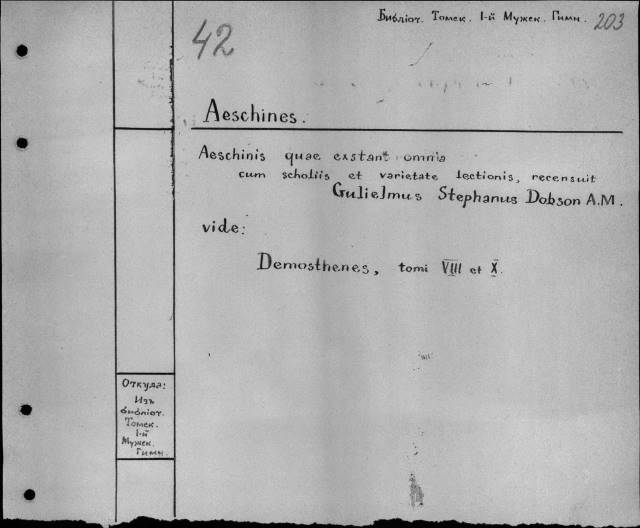 Библіот. Томск. 1-й Мужск. Гимн. 203
42
Aeschines.
Aeschinis quae exstant omnia
cum scholiis et varietate lectionis, recensuit
Gulielmus Stephanus Dobson A.M.
vide:
Demosthenes, tomi VIII et X.
Откуда:
Изъ
библіот.
Томск.
1-й
Мужск.
Гимн.